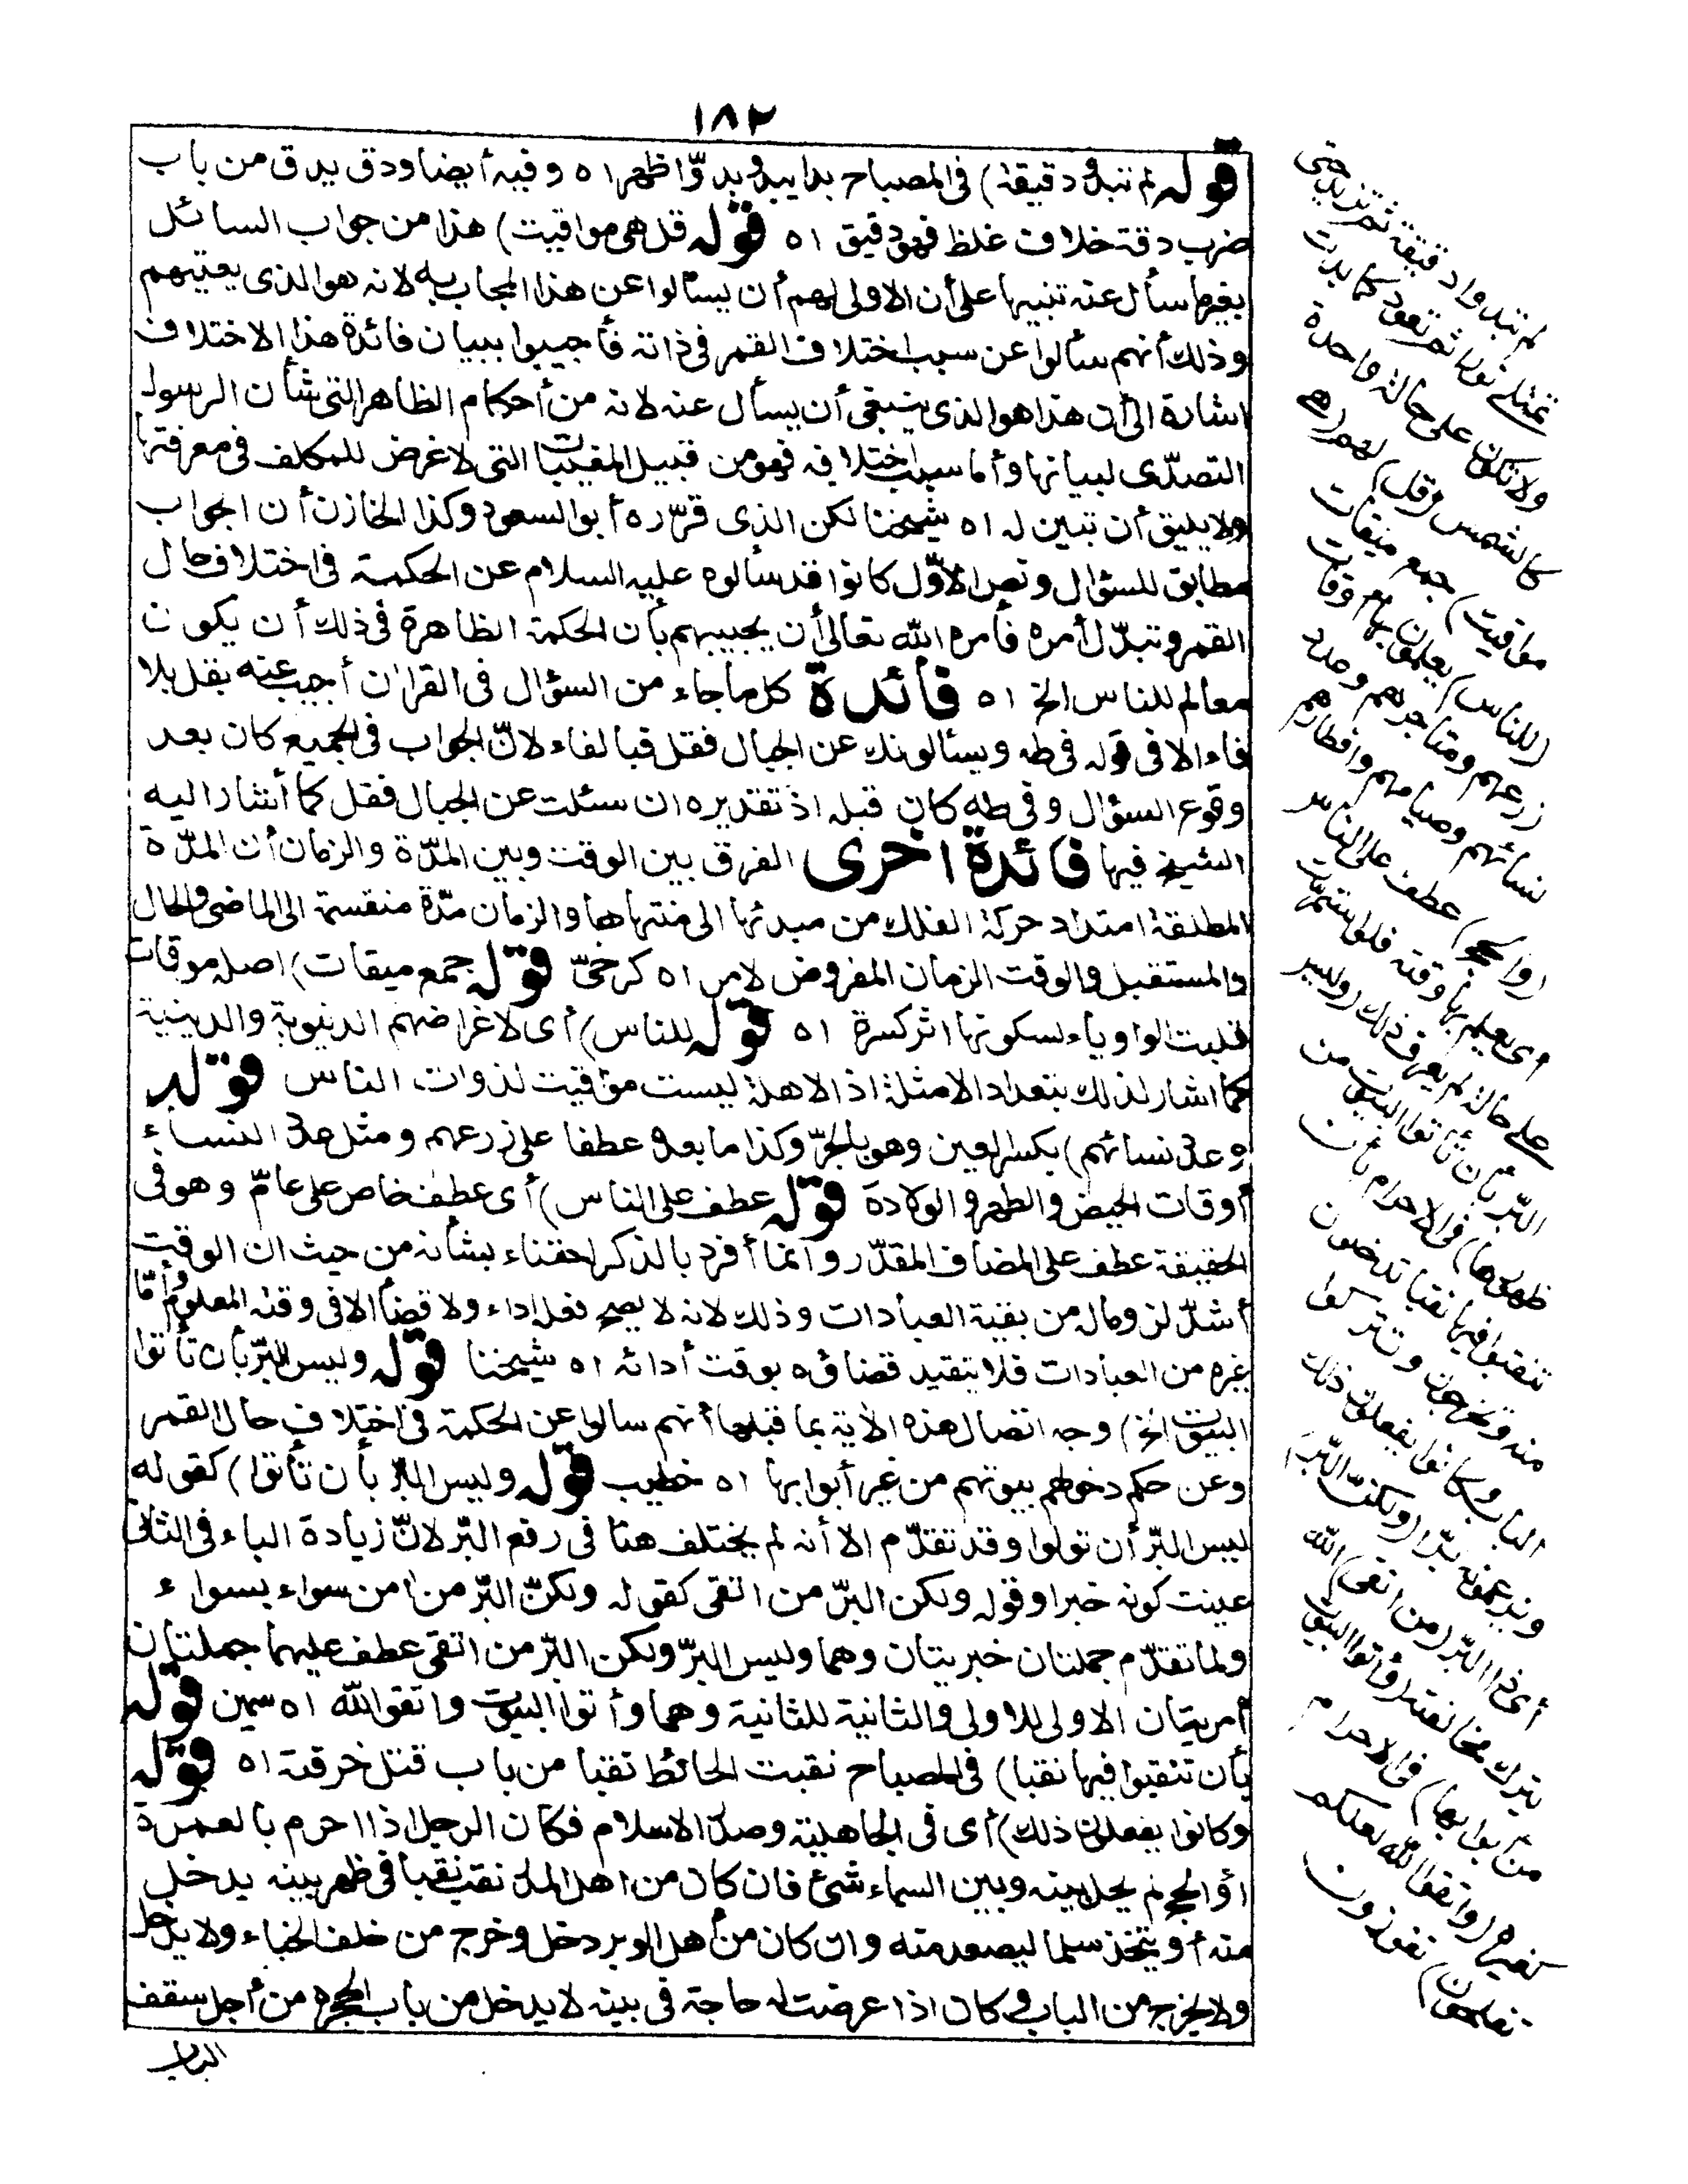 ١٨٢
قوله لم تبدو دقيقة) فى المصباح بدا يبدو بدوّا ظهر اه وفيه أيضا ودق يدق من باب
ضرب دقة خلاف غلظ فهو دقيق اه قوله قل هى مواقيت) هذا من جواب السائل
بغير ما سأل عنه تنبيها على أن الاولى لهم أن يسألوا عن هذا المجاب به لانه هو الذى يعنيهم
وذلك أنهم سألوا عن سبب اختلاف القمر فى ذاته فأجيبوا ببيان فائدة هذا الاختلاف
اشارة الى أن هذا هو الذى ينبغى أن يسأل عنه لانه من أحكام الظاهر التى شأن الرسول
التصدّى لبيانها وأما سبب اختلافه فهو من قبيل المغيبات التى لا غرض للمكلف فى معرفتها
ولا يليق أن تبين له اه شيخنا لكن الذى قرّره أبو السعود وكذا الخازن أن الجواب
مطابق للسؤال ونص الأوّل كانوا قد سألوه عليه السلام عن الحكمة فى اختلاف حال
القمر وتبدّل أمره فأمره الله تعالى أن يجيبهم بأن الحكمة الظاهرة فى ذلك أن يكون
معالم للناس الخ اه فائدة كل ما جاء من السؤال فى القران أجيب عنه بقل بلا
فاء الا فى قوله فى طه ويسألونك عن الجبال فقل فبالفاء لانّ الجواب فى الجميع كان بعد
وقوع السؤال وفى طه كان قبله اذ تقديره ان سئلت عن الجبال فقل كما أشار اليه
الشيخ فيها فائدة اخرى الفرق بين الوقت وبين المدّة والزمان أن المدّة
المطلقة امتداد حركة الفلك من مبدئها الى منتهاها والزمان مدّة منقسمة الى الماضى والحال
والمستقبل والوقت الزمان المفروض لامر اه كرخىّ قوله جمع ميقات) اصله موقات
قلبت الواو ياء لسكونها اثر كسرة اه قوله للناس) أى لاغراضهم الدنيوية والدينية
كما اشار لذلك بتعداد الامثلة اذ الاهلة ليست مواقيت لذوات الناس قوله
وعدد نسائهم) بكسر العين وهو بالجرّ وكذا ما بعده عطفا على زرعهم ومثل عدد النساء
أوقات الحيض والطهر والولادة قوله عطف على الناس) أى عطف خاص على عامّ وهو فى
الحقيقة عطف على المضاف المقدّر وانما أفرد بالذكر اعتناء بشأنه من حيث ان الوقت
أشدّ لزوما له من بقية العبادات وذلك لانه لا يصح فعله اداء ولا قضاأ الا فى وقته المعلوم وأمّا
غيره من العبادات فلا يتقيد قضاؤه بوقت أدائه اه شيخنا قوله وليس البرّ بأن تأتوا
البيوت الخ) وجه اتصال هذه الاية بما قبلها أنهم سالوا عن الحكمة فى اختلاف حال القمر
وعن حكم دخولهم بيوتهم من غير أبوابها اه خطيب قوله وليس البرّ بأن تأتوا) كقوله
ليس البرّ أن تولوا وقد تقدّم الا أنه لم يختلف هنا فى رفع البرّ لانّ زيادة الباء فى الثانى
عينت كونه خبرا وقوله ولكن البرّ من اتقى كقوله ولكنّ البرّ من امن سواء بسواء
ولما تقدّم جملتان خبريتان وهما وليس البرّ ولكن البرّ من اتقى عطف عليهما جملتان
أمريتان الاولى للاولى والثانية للثانية وهما وأتوا البيوت واتقوا الله اه سمين قوله
بأن تنقبوا فيها نقبا) فى المصباح نقبت الحائط نقبا من باب قتل خرقته اه قوله
وكانوا يفعلون ذلك) أى فى الجاهلية وصدر الاسلام فكان الرجل اذا احرم بالعمرة
أو الحج لم يحل بينه وبين السماء شئ فان كان من اهل المدر نقب نقبا فى ظهر بيته يدخل
منه أو يتخذ سلما ليصعد منه وان كان من أهل الوبر دخل وخرج من خلف الخباء ولا يدخل
ولا يخرج من الباب وكان اذا عرضت له حاجة فى بيته لا يدخل من باب الحجرة من أجل سقف
الباب
لم تبدوا دقيقة ثم تزيد حتى
تمتلئ نورا ثم تعود كما بدت
ولا تكون على حالة واحدة
كالشمس (قل) لهم (هى
مواقيت) جمع ميقات
(للناس) يعلمون بها أوقات
زرعهم ومتاجرهم وعدد
نسائهم وصيامهم وافطارهم
(والحج) عطف على الناس
أى يعلم بها وقته فلو استمرّت
على حالة لم يعرف ذلك (وليس
البرّ بأن تأتوا البيوت من
ظهورها) فى الاحرام بأن
تنقبوا فيها نقبا تدخلون
منه وتخرجون وتتركوا
الباب وكانوا يفعلون ذلك
ويزعمونه برّا (ولكنّ البرّ)
أى ذا البرّ (من اتقى) الله
بترك مخالفته (وأتوا البيوت
من أبوابها) فى الاحرام
كغيره (واتقوا الله لعلكم
تفلحون) تفوزون